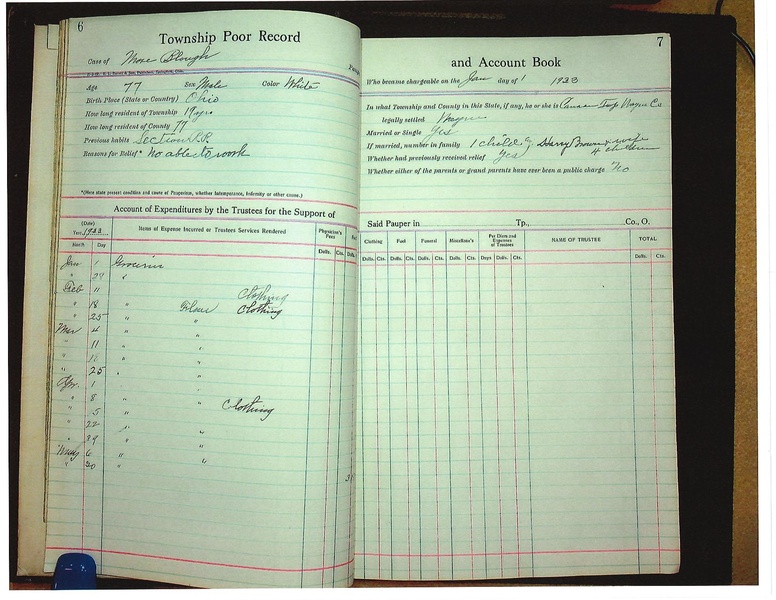 6
Township Poor Record
Case of Mose Blough
Age 77 Sex Male Color White
Birth Place (State or Country) Ohio
How long resident of Township 19 yrs
How long resident of County 77
Previous habits Section P.P.
Reasons for Relief* No able to work
*(Here state present condition and cause of Pauperism, whether Intemperance, Infirmity or other cause.)
Account of Expenditures by the Trustees for the Support of
(Date)
Year
Items of Expense Incurred or Trustees Services Rendered
Physician's Fees
Month Day
Dolls. Cts. Dolls.
Jan 1 Groceries
" 29 "
Feb 11 Clothing
" 18 " Flour Clothing
" 25 " "
Mar 4 " "
" 11 " "
" "
" 25 " "
Apr. 1 "
" 8 " " Clothing
" 5 "
" 22 " "
" "
May 6 " "
" 20 " "
7
and Account Book
Who became chargeable on the Jan day of 1 1933
In what Township and County in this State, if any, he or she is Canaan Twp Wayne Co
legally settled Wayne
Married or Single Yes
If married, number in family 1 child Harry Brown & wife
4 children
Whether had previously received relief Yes
Whether either of the parents or grand parents have ever been a public charge No
Said Pauper in Tp., Co., O.
Clothing Fuel Funeral Miscellan's Per Diem and Expenses of Trustees NAME OF TRUSTEE TOTAL
Dolls. Cts. Dolls. Cts. Dolls. Cts. Dolls. Cts. Days Dolls. Cts. Dolls. Cts.